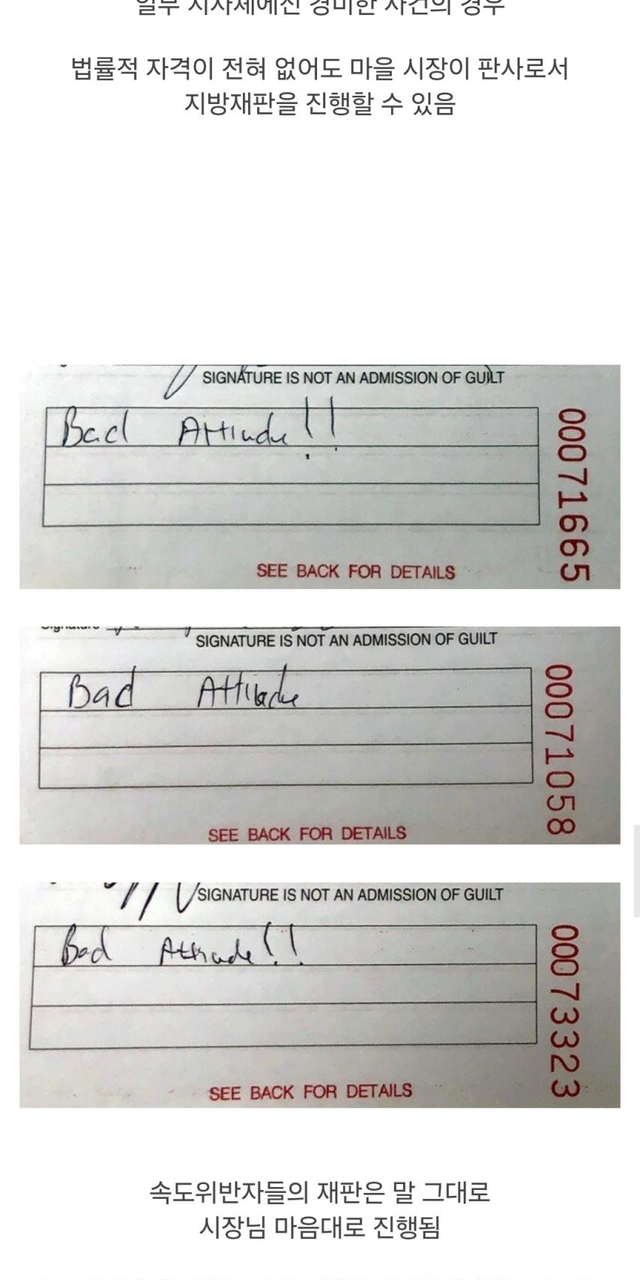 일부 지자체에선 경미한 사건의 경우
법률적 자격이 전혀 없어도 마을 시장이 판사로서
지방재판을 진행할 수 있음
SIGNATURE IS NOT AN ADMISSION OF GUILT
Bad Attitude!!
00071665
SEE BACK FOR DETAILS
Signature
SIGNATURE IS NOT AN ADMISSION OF GUILT
Bad Attitude
00071058
SEE BACK FOR DETAILS
SIGNATURE IS NOT AN ADMISSION OF GUILT
Bad Attitude!!
00073323
SEE BACK FOR DETAILS
속도위반자들의 재판은 말 그대로
시장님 마음대로 진행됨